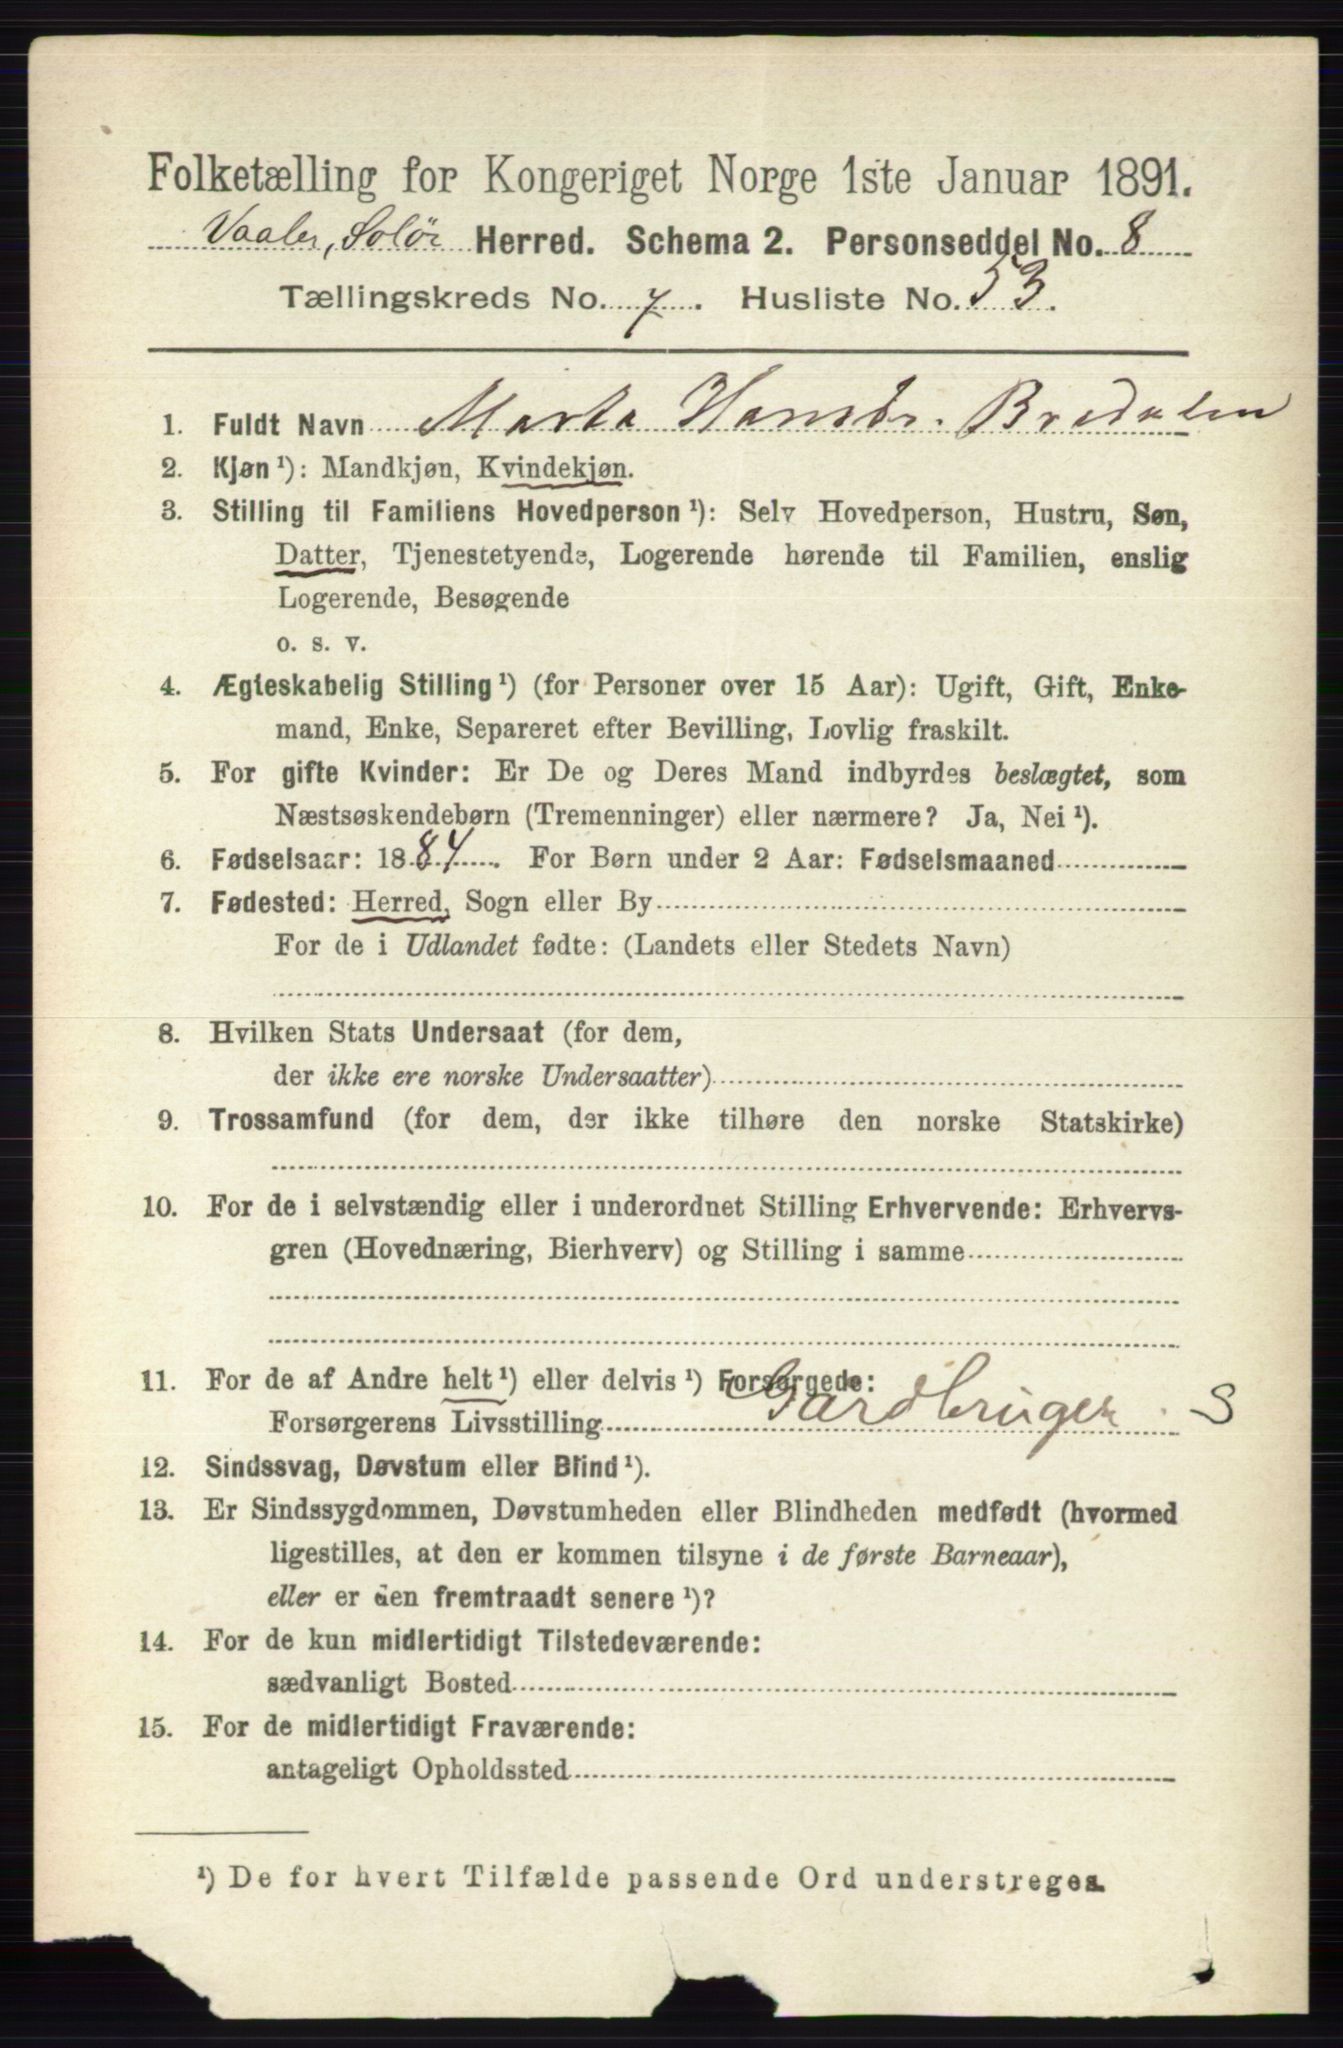 Folketælling for Kongeriget Norge 1ste Januar 1891.
Vaaler, Solör Herred. Schema 2. Personseddel No. 8
Tællingskreds No. 7. Husliste No. 53.
1. Fuldt Navn Marta Hansdr. Bredalen
2. Kjøn ¹): Mandkjøn, Kvindekjøn.
3. Stilling til Familiens Hovedperson ¹): Selv Hovedperson, Hustru, Søn,
Datter, Tjenestetyende, Logerende hørende til Familien, enslig
Logerende, Besøgende
o. s. v.
4. Ægteskabelig Stilling ¹) (for Personer over 15 Aar): Ugift, Gift, Enke-
mand, Enke, Separeret efter Bevilling, Lovlig fraskilt.
5. For gifte Kvinder: Er De og Deres Mand indbyrdes beslægtet, som
Næstsøskendebørn (Tremenninger) eller nærmere? Ja, Nei ¹).
6. Fødselsaar: 1884. For Børn under 2 Aar: Fødselsmaaned
7. Fødested: Herred, Sogn eller By
For de i Udlandet fødte: (Landets eller Stedets Navn)
8. Hvilken Stats Undersaat (for dem,
der ikke ere norske Undersaatter)
9. Trossamfund (for dem, der ikke tilhøre den norske Statskirke)
10. For de i selvstændig eller i underordnet Stilling Erhvervende: Erhvervs-
gren (Hovednæring, Bierhverv) og Stilling i samme
11. For de af Andre helt ¹) eller delvis ¹) Forsørgede:
Forsørgerens Livsstilling Gardbruger S
12. Sindssvag, Døvstum eller Blind ¹).
13. Er Sindssygdommen, Døvstumheden eller Blindheden medfødt (hvormed
ligestilles, at den er kommen tilsyne i de første Barneaar),
eller er den fremtraadt senere ¹)?
14. For de kun midlertidigt Tilstedeværende:
sædvanligt Bosted
15. For de midlertidigt Fraværende:
antageligt Opholdssted
¹) De for hvert Tilfælde passende Ord understreges.